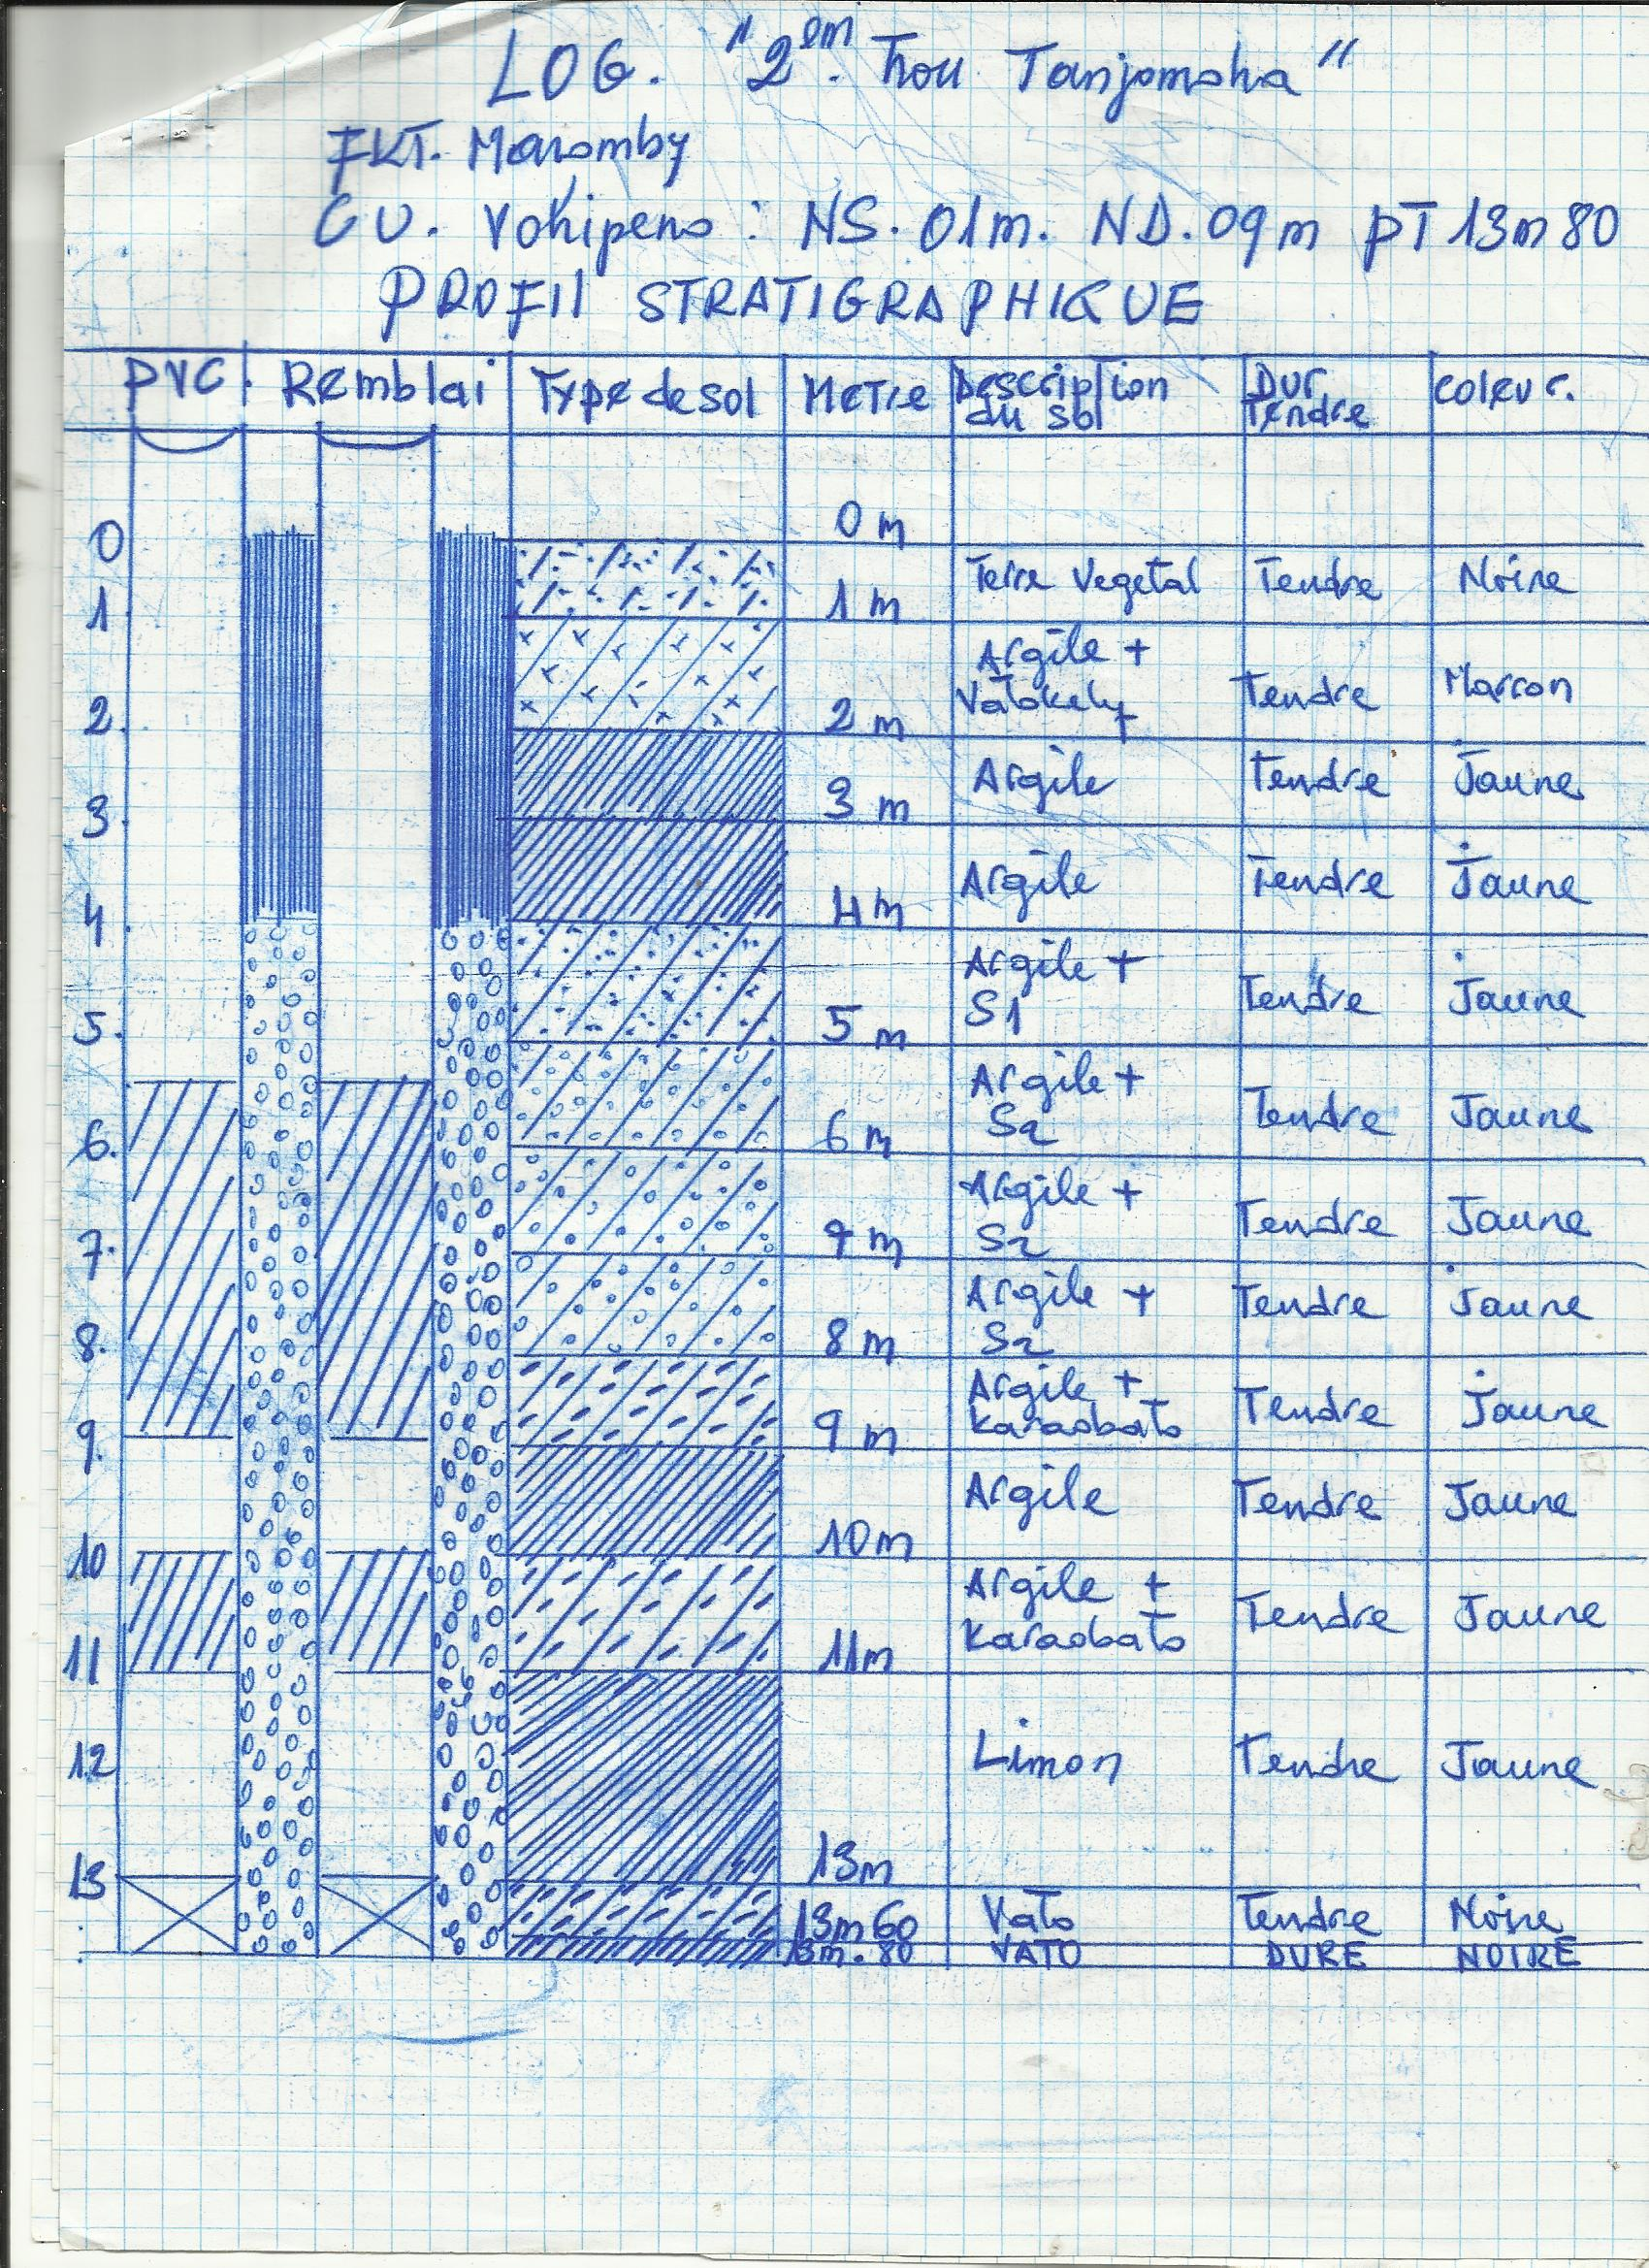 LOG. "2em. trou Tanjomoha"
FKT. Maromby
CU. Vohipeno : NS. 01m. ND. 09m PT 13m80
PROFIl STRATIGRAPHIQUE
PVC. Remblai Type de sol Metre Description du sol Dur Tendre Coleur.
0 0 m
1 1 m Terre Vegetal Tendre Noire
2. 2 m Argile + Vatokely Tendre Marron
3 3 m Argile Tendre Jaune
4 4m Argile Tendre Jaune
5. 5 m Argile + S1 Tendre Jaune
6. 6 m Argile + S2 Tendre Jaune
7. 7 m Argile + S2 Tendre Jaune
8. 8 m Argile + S2 Tendre Jaune
9. 9 m Argile + Karaobato Tendre Jaune
10 10m Argile Tendre Jaune
11 11m Argile + Karaobato Tendre Jaune
12 Limon Tendre Jaune
13 13m
13m60 Vato Tendre Noire
13m.80 VATO DURE NOIRE